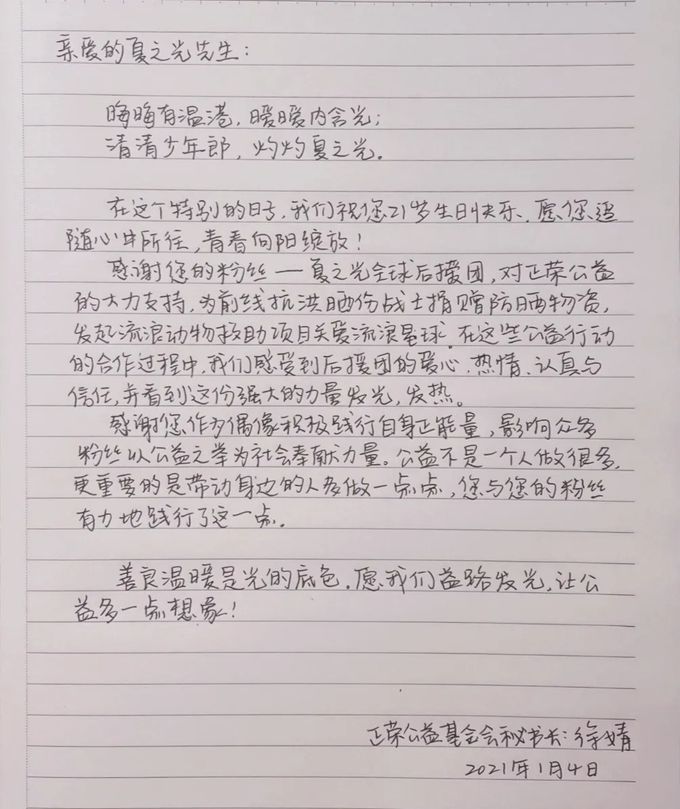 亲爱的夏之光先生：
晦晦有温港，暧暧内含光；
清清少年郎，灼灼夏之光。
在这个特别的日子，我们祝您21岁生日快乐、愿您追
随心中所往，青春向阳绽放！
感谢您的粉丝——夏之光全球后援团，对正荣公益
的大力支持，为前线抗洪晒伤战士捐赠防晒物资，
发起流浪动物救助项目关爱流浪星球。在这些公益行动
的合作过程中，我们感受到后援团的爱心、热情、认真与
信任，并看到这份强大的力量发光，发热。
感谢您作为偶像积极践行自身正能量，影响众多
粉丝以公益之举为社会奉献力量。公益不是一个人做很多，
更重要的是带动身边的人多做一点点，您与您的粉丝
有力地践行了这一点。
善良温暖是光的底色，愿我们益路发光，让公
益多一点想象！
正荣公益基金会秘书长：徐婧
2021年1月4日